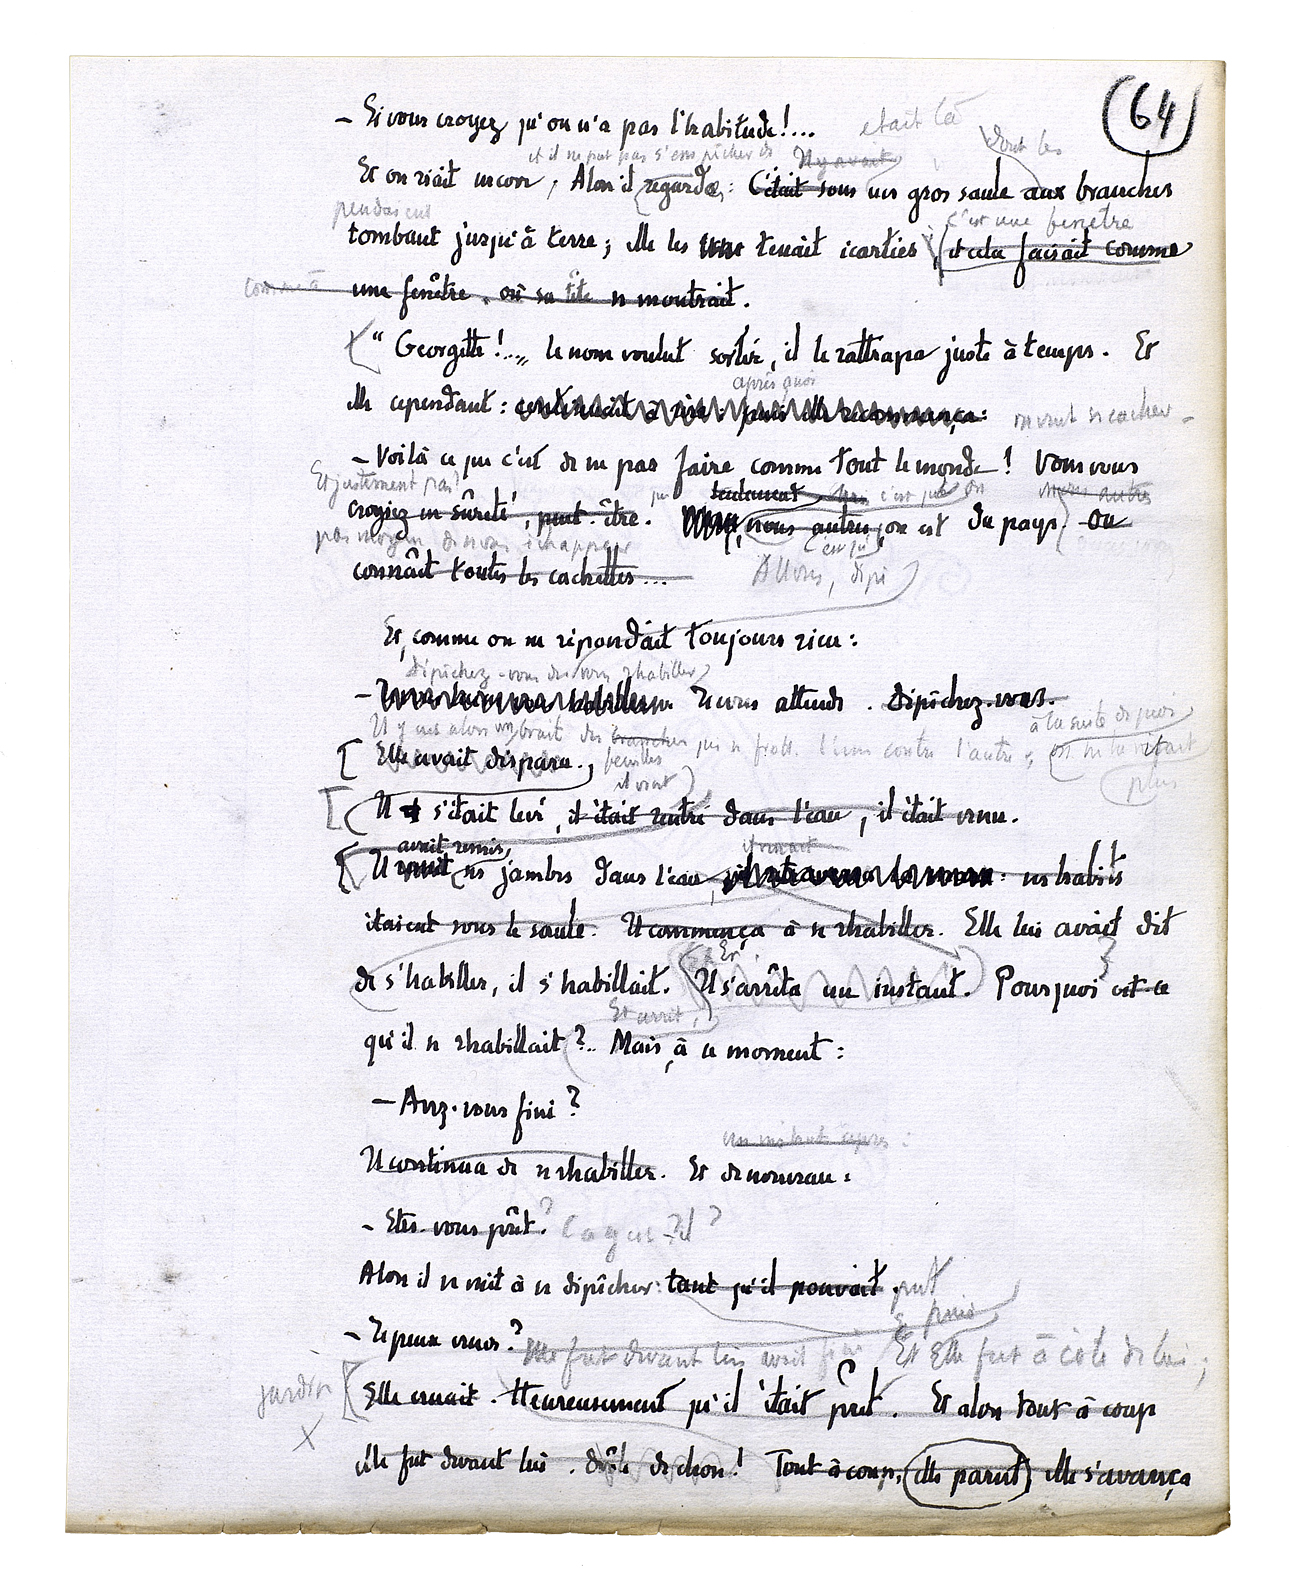 64
– Si vous croyez qu'on n'a pas l'habitude!...
était là
dont les
et il ne put pas s'empêcher de
Il y avait
Et on riait encore, Alors il regarda: C'était sous un gros saule aux branches
pendaient
c'est une fenêtre
tombant jusqu'à terre; elle les tenait écartées, et cela faisait comme
comme à
une fenêtre, où sa tête se montrait.
"Georgette!..." le nom voulut sortir, il le rattrapa juste à temps. Et
après quoi
elle cependant: continuait à rire: puis elle recommença:
on veut se cacher –
– Voilà ce que c'est de ne pas faire comme tout le monde! Vous vous
Et justement pas!
seulement
c'est que on
nous autres
croyiez en sûreté, peut-être. nous autres, on est du pays, on
pas moyen de nous échapper
c'est qu'
connaît toutes les cachettes...
Allons, dépê
Et, comme on ne répondait toujours rien:
dépêchez-vous de vous rhabiller
– Je vous attends. Dépêchez-vous.
à la suite de quoi
Il y eut alors un bruit des branches qui se frott. l'une contre l'autre; on ne la voyait
plus
Elle avait disparu.
feuilles
il vint
Il s'était levé, il était rentré dans l'eau, il était venu.
avait remis
Il ses jambes dans l'eau, : ses habits
étaient sous le saule. Il commença à se rhabiller. Elle lui avait dit
de s'habiller, il s'habillait. Il s'arrêta un instant. Pourquoi est-ce
Et
Et arrit,
qu'il se rhabillait?.. Mais, à ce moment:
– Avez-vous fini?
un instant après:
Il continua de se rhabiller. Et de nouveau:
– Etes-vous prêt?
Ça y est-il?
Alors il se mit à se dépêcher: tant qu'il pouvait.
put
Et puis
– Je peux venir?
Elle fut devant lui avait fini
Et Elle fut à côté de lui;
jardin
Elle venait. Heureusement qu'il était prêt. Et alors tout à coup
elle fut devant lui. drôle de chose! Tout à coup, elle parut, elle s'avança